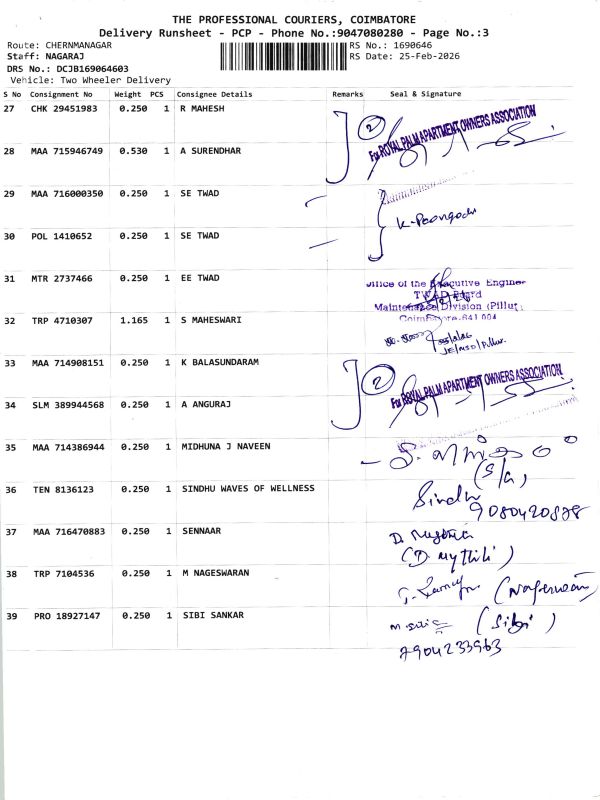 THE PROFESSIONAL COURIERS, COIMBATORE
Delivery Runsheet - PCP - Phone No.:9047080280 - Page No.:3
Route: CHERNMANAGAR RS No.: 1690646
Staff: NAGARAJ RS Date: 25-Feb-2026
DRS No.: DCJB169064603
Vehicle: Two Wheeler Delivery
S No Consignment No Weight PCS Consignee Details Remarks Seal & Signature
27 CHK 29451983 0.250 1 R MAHESH
2
For ROYAL PALM APARTMENT OWNERS ASSOCIATION
28 MAA 715946749 0.530 1 A SURENDHAR
29 MAA 716000350 0.250 1 SE TWAD
30 POL 1410652 0.250 1 SE TWAD
31 MTR 2737466 0.250 1 EE TWAD
Office of the Executive Engineer
TWAD Board
Maintenance Division (Pillur)
Coimbatore-641 004
32 TRP 4710307 1.165 1 S MAHESWARI
33 MAA 714908151 0.250 1 K BALASUNDARAM
2
For ROYAL PALM APARTMENT OWNERS ASSOCIATION
34 SLM 389944568 0.250 1 A ANGURAJ
35 MAA 714386944 0.250 1 MIDHUNA J NAVEEN
(S/A)
36 TEN 8136123 0.250 1 SINDHU WAVES OF WELLNESS
Sindhu
9080420898
37 MAA 716470883 0.250 1 SENNAAR
(D. Mythili)
38 TRP 7104536 0.250 1 M NAGESWARAN
39 PRO 18927147 0.250 1 SIBI SANKAR
(Sibi)
7904233963